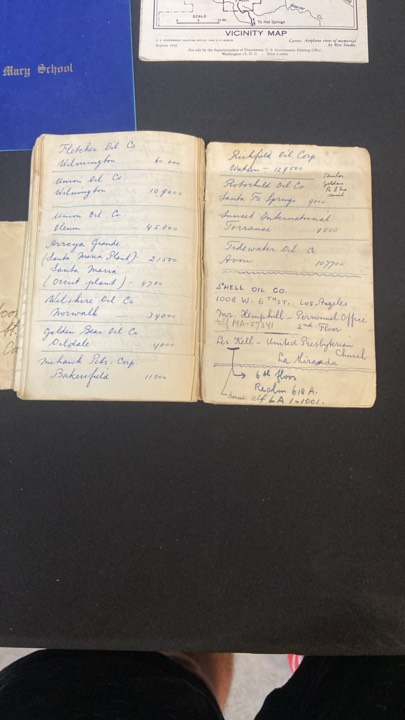 Mary School
SCALE
To Hot Springs
VICINITY MAP
Fletcher Oil Co
Wilmington 60 000
Union Oil Co
Wilmington 109000
Union Oil Co
Oleum 45000
Arroyo Grande
(Santa Maria Plant) 21500
Santa Maria
(Orcut plant) - 4700
Wilshire Oil Co
Norwalk 34000
Golden Bear Oil Co
Oildale 4000
Mohawk Petr. Corp.
Bakersfield 11000
Richfield Oil Corp
Watson - 129500
Rothschild Oil Co
Santa Fe Springs 9000
Sunset International
Torrance
Tidewater Oil Co
Avon 107700
SHELL OIL CO.
1008 W. 6TH ST. LOS Angeles
Mr. Hemphill - Personnel Office
MA-57241 2nd Floor
Kell - United Presbyterian
Church
La Mirada
→ 6th floor
Realm 618A.
LA 1-1001.